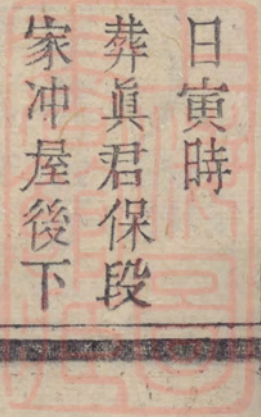 日寅時
葬眞君保段
家冲屋後下